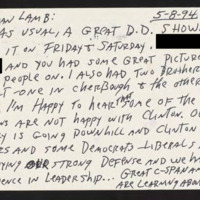 AN LAMB: 5-8-94
AS USUAL, A GREAT D.D. SHOW
IT ON FRIDAY & SATURDAY.
AND YOU HAD SOME GREAT PICTURE
PEOPLE ON. I ALSO HAD TWO BROTHERS
T-ONE IN CHERBOUGH & THE OTHER
I'M HAPPY TO HEAR THAT SOME OF THE
NS ARE NOT HAPPY WITH CLINTON. OU
RY IS GOING DOWNHILL AND CLINTON
ERS AND SOME DEMOCRATS-LIBERALS A
YING OUR STRONG DEFENSE AND WE HA
DENCE IN LEADERSHIP... GREAT C-SPAN AN
ARE LEARNING ABOU